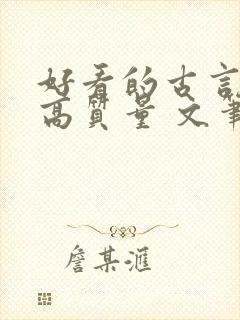 好看的古言
高质量 文笔
詹某滙